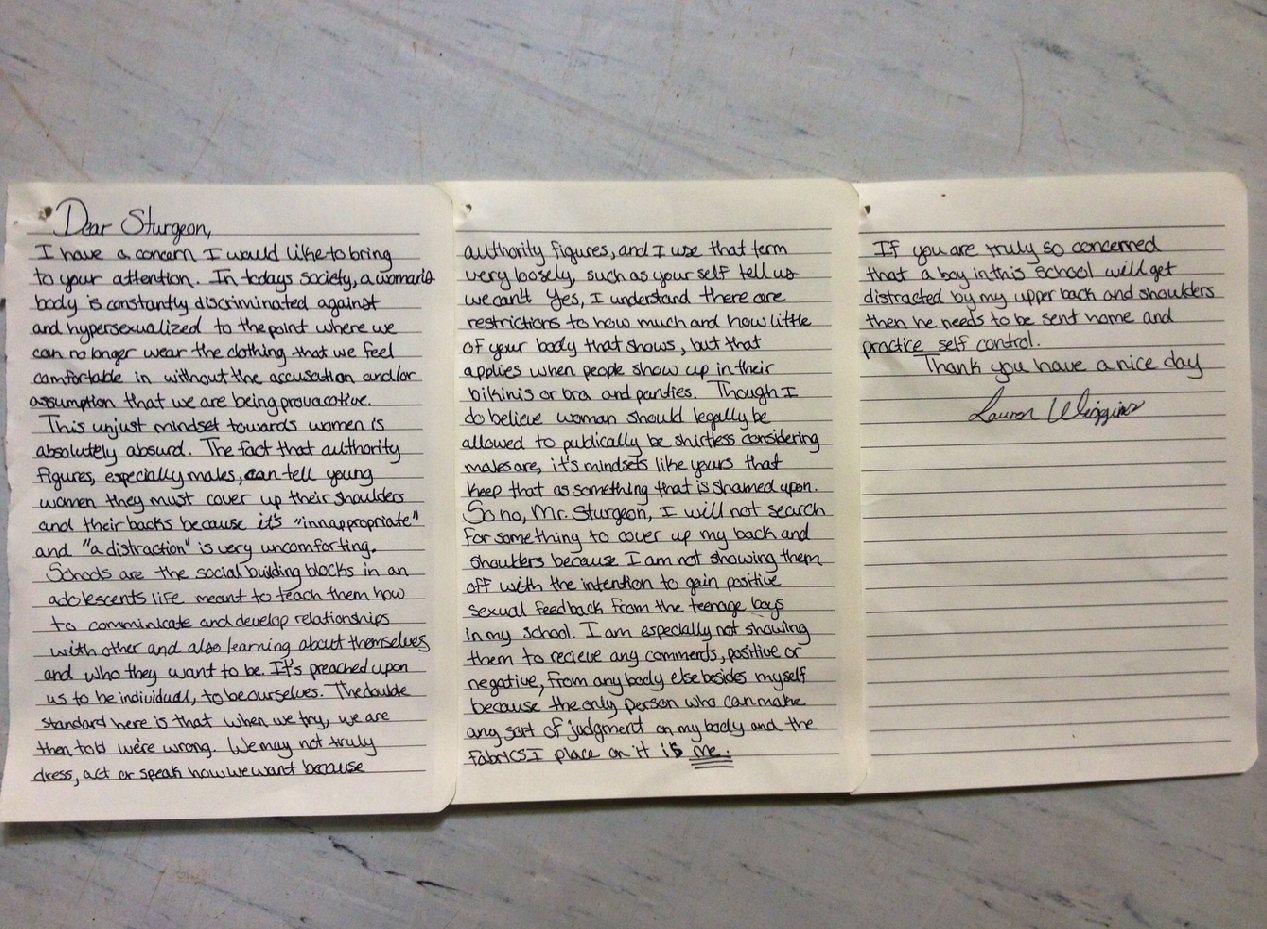 Dear Sturgeon,
I have a concern I would like to bring
to your attention. In todays society, a woman's
body is constantly discriminated against
and hypersexualized to the point where we
can no longer wear the clothing that we feel
comfortable in without the accusation and/or
assumption that we are being provacative.
This unjust mindset towards women is
absolutely absurd. The fact that authority
figures, especially males, can tell young
women they must cover up their shoulders
and their backs because it's "innappropriate"
and "a distraction" is very uncomforting.
Schools are the social building blocks in an
adolescents life meant to teach them how
to comminicate and develop relationships
with other and also learning about themselves
and who they want to be. It's preached upon
us to be individual, to be ourselves. The double
standard here is that when we try, we are
then told we're wrong. We may not truly
dress, act or speak how we want because
authority figures, and I use that term
very loosely, such as your self tell us
we can't. Yes, I understand there are
restrictions to how much and how little
of your body that shows, but that
applies when people show up in their
bikinis or bra and panties. Though I
do believe woman should legally be
allowed to publically be shirtless considering
males are, it's mindsets like yours that
keep that as something that is shamed upon.
So no, Mr. Sturgeon, I will not search
for something to cover up my back and
shoulders because I am not showing them
off with the intention to gain positive
sexual feedback from the teenage boys
in my school. I am especially not showing
them to recieve any comments, positive or
negative, from anybody else besides myself
because the only person who can make
any sort of judgment on my body and the
fabrics I place on it is me.
If you are truly so concerned
that a boy in this school will get
distracted by my upper back and shoulders
then he needs to be sent home and
practice self control.
Thank you have a nice day
Lauren Wiggins